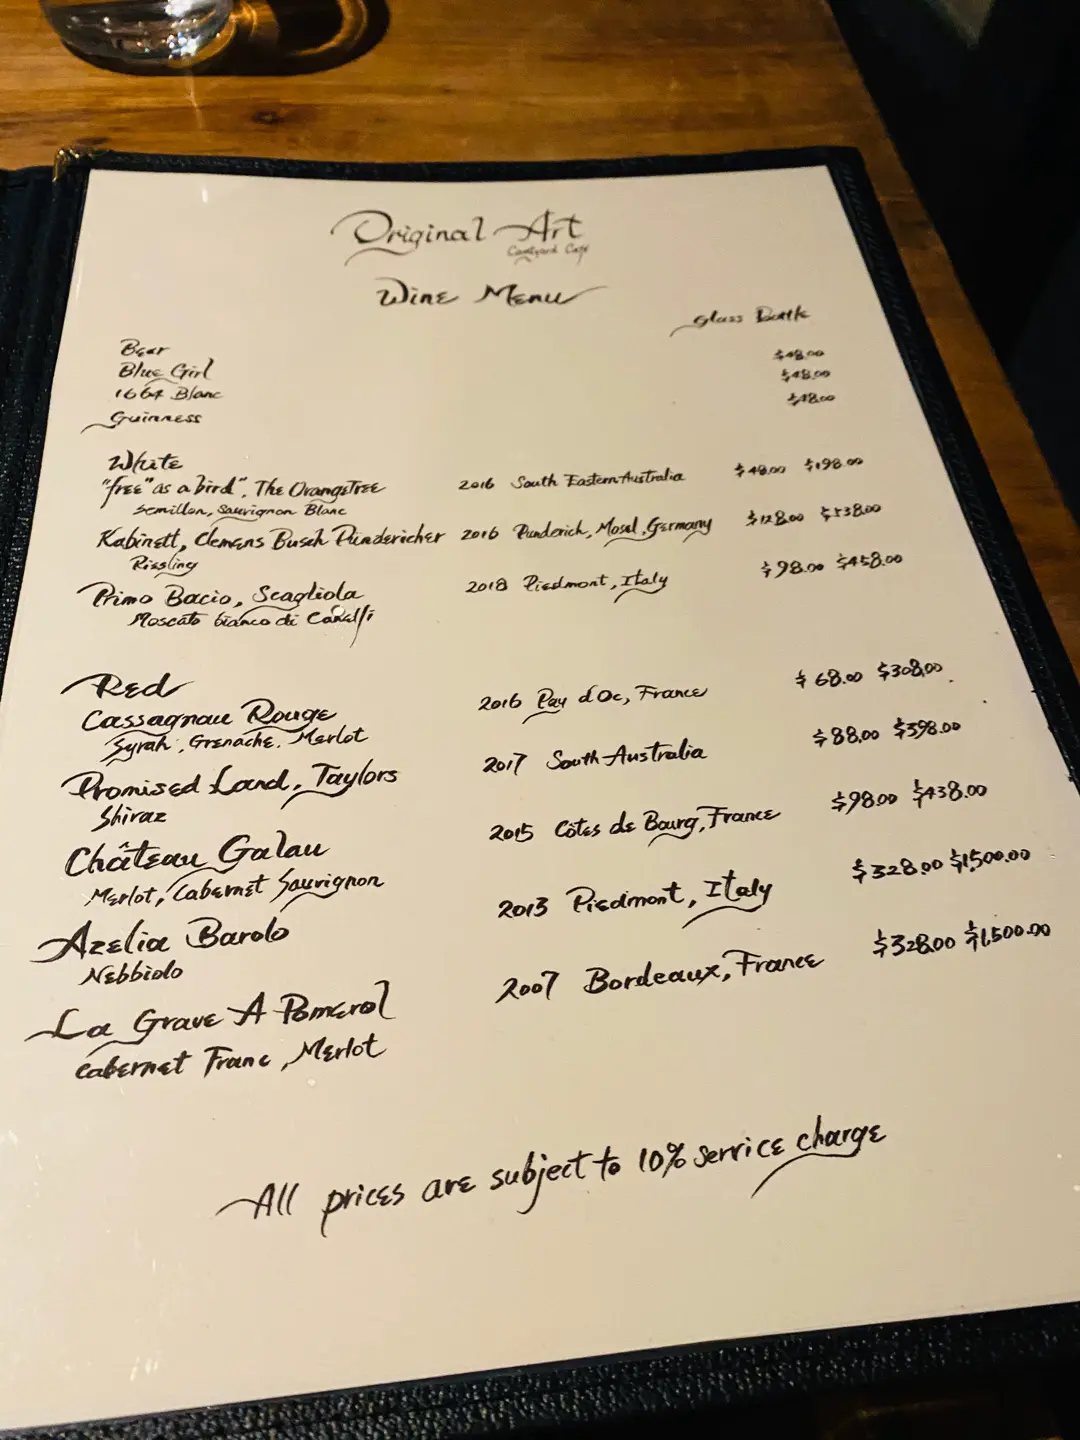 Original Art
Courtyard Café
Wine Menu
Glass Bottle
Bear
Blue Girl $48.00
1664 Blanc $48.00
Guinness $48.00
White
"free" as a bird", The Orangetree 2016 South Eastern Australia $48.00 $198.00
Semillon, Sauvignon Blanc
Kabinett, Clemens Busch Pundericher 2016 Punderich, Mosel, Germany $128.00 $538.00
Riesling
Primo Bacio, Scagliola 2018 Piedmont, Italy $98.00 $458.00
Moscato bianco di Canelli
Red
Cassagnau Rouge 2016 Pay d'Oc, France $68.00 $308.00
Syrah, Grenache. Merlot
Promised Land, Taylors 2017 South Australia $88.00 $398.00
Shiraz
Château Galau 2015 Côtes de Bourg, France $98.00 $438.00
Merlot, Cabernet Sauvignon
Azelia Barolo 2013 Piedmont, Italy $328.00 $1,500.00
Nebbiolo
La Grave A Pomerol 2007 Bordeaux, France $328.00 $1,500.00
Cabernet Franc, Merlot
All prices are subject to 10% service charge